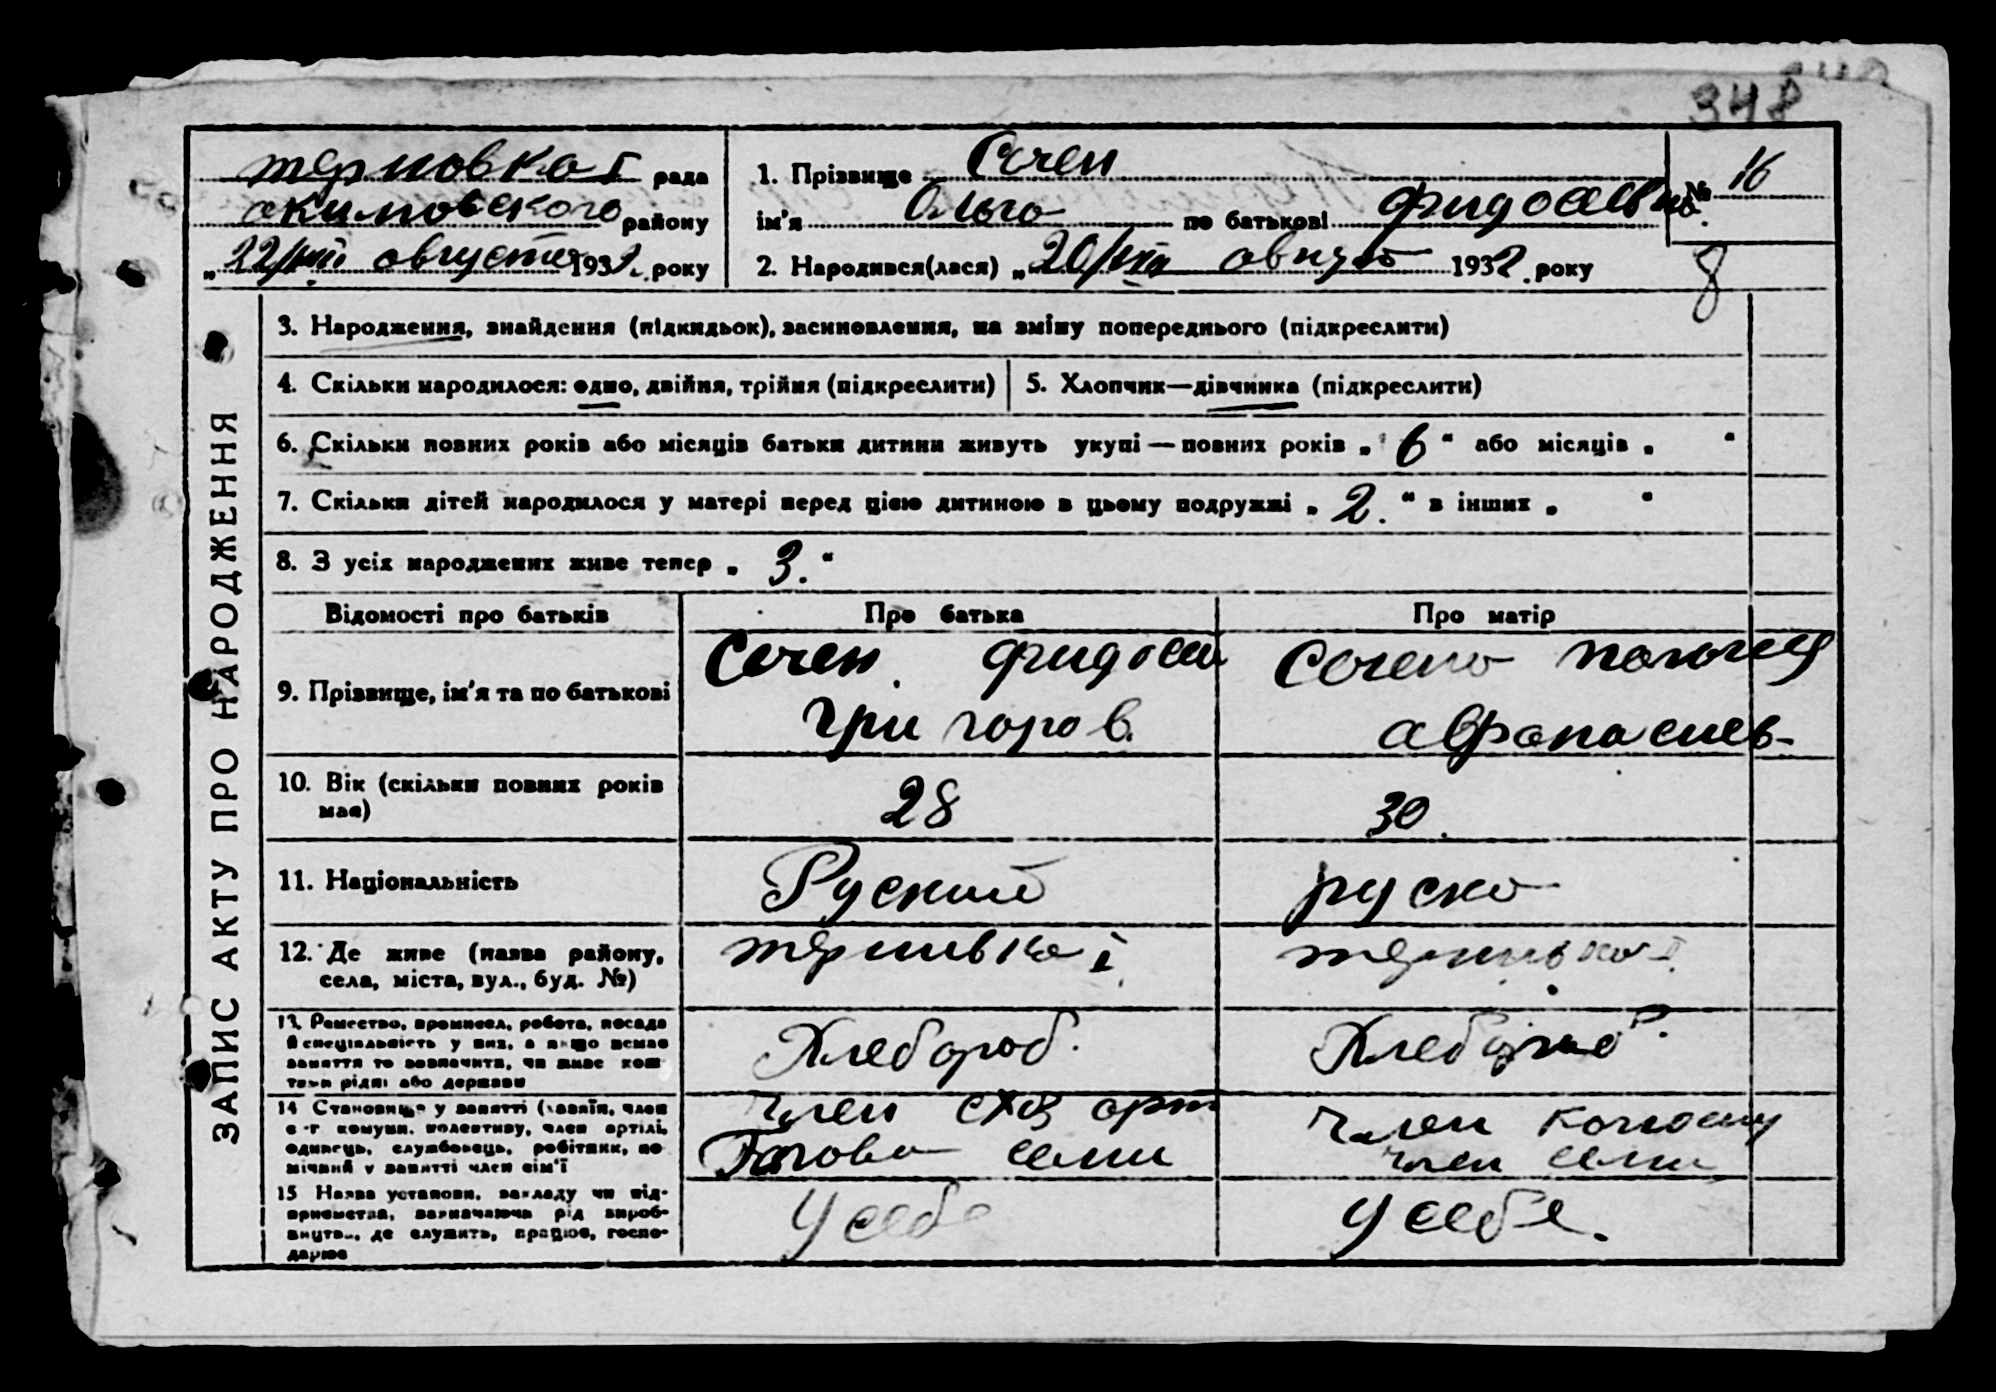 348
терновка I рада
акимовского району
„22/VIII августа 1932. року
1. Прізвище Сочен
ім'я Ольга по батькові фидосиевн
№ 16
2. Народився(лася) „20/VIII август 1932. року
8
ЗАПИС АКТУ ПРО НАРОДЖЕННЯ
3. Народження, знайдення (підкидьок), засиновлення, на зміну попереднього (підкреслити)
4. Скільки народилося: одно, двійня, трійня (підкреслити)
5. Хлопчик—дівчинка (підкреслити)
6. Скільки повних років або місяців батьки дитини живуть укупі — повних років „6“ або місяців „ “
7. Скільки дітей народилося у матері перед цією дитиною в цьому подружжі „2.“ в інших „ “
8. З усіх народжених живе тепер „3.“
Відомості про батьків
Про батька
Про матір
9. Прізвище, ім'я та по батькові
Сочен фидосий
Григоров.
Сочено
афонасиев-
10. Вік (скільки повних років
має)
28
30.
11. Національність
Руский
руско
12. Де живе (назва району,
села, міста, вул., буд. №)
терновка I
терновка I
13. Ремество, промисел, робота, посада
й спеціальність у них, а якщо немає
заняття то зазначити, чи живе кош-
тами рідні або держави
Хлебороб.
Хлебороб.
14 Становище у занятті (хазяїн, член
с-г комуни, колективу, член артілі,
одинець, службовець, робітник, по-
мічний у занятті член сім'ї
член схоз арт
Голова семи
член колхозу
член семи
15 Назва установи, закладу чи під-
приємства, зазначаючи рід вироб-
ництва, де служить, працює, госпо-
дарює
У себе
У себе.